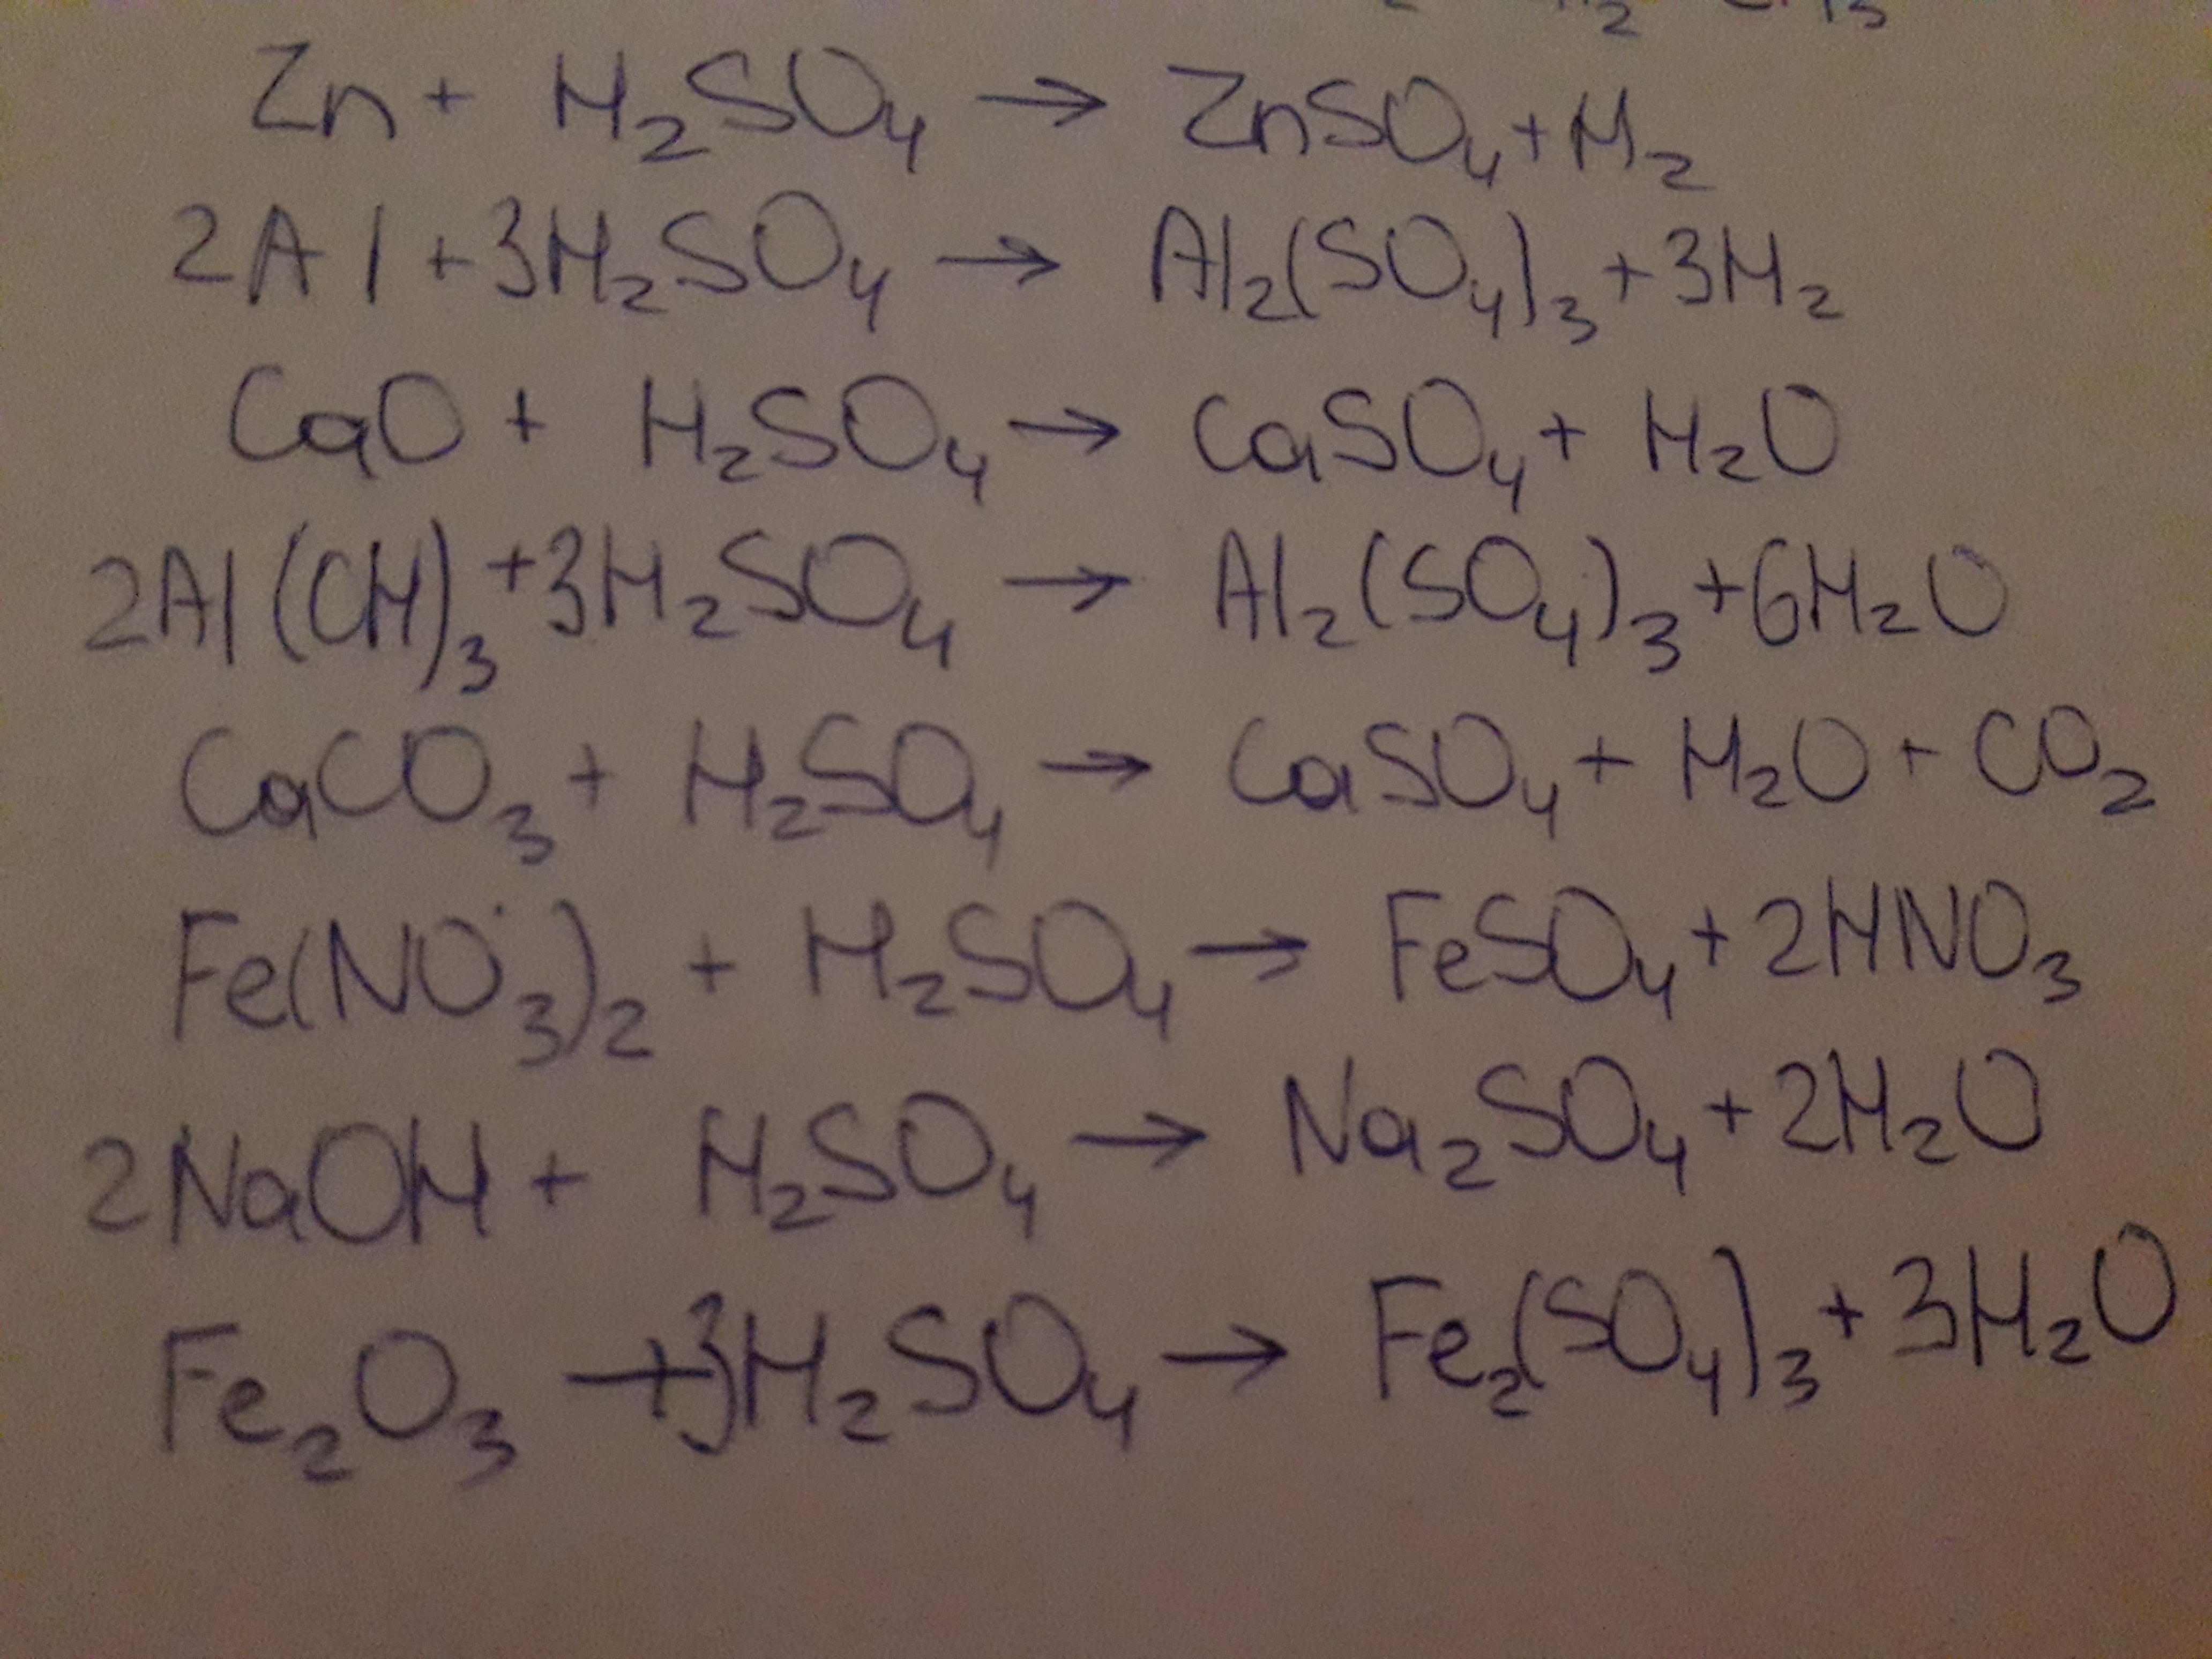 Zn + H₂SO₄ → ZnSO₄ + H₂
2Al + 3H₂SO₄ → Al₂(SO₄)₃ + 3H₂
CaO + H₂SO₄ → CaSO₄ + H₂O
2Al(OH)₃ + 3H₂SO₄ → Al₂(SO₄)₃ + 6H₂O
CaCO₃ + H₂SO₄ → CaSO₄ + H₂O + CO₂
Fe(NO₃)₂ + H₂SO₄ → FeSO₄ + 2HNO₃
2NaOH + H₂SO₄ → Na₂SO₄ + 2H₂O
Fe₂O₃ + 3H₂SO₄ → Fe₂(SO₄)₃ + 3H₂O